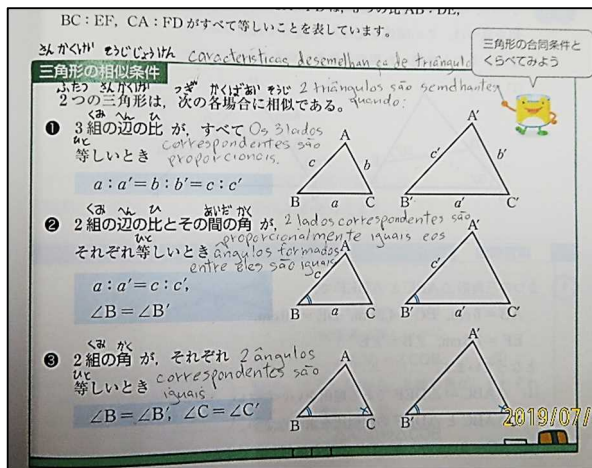 BC：EF，CA：FDがすべて等しいことを表しています。
さんかくけい そうじじょうけん
Características de semelhança de triângulo
三角形の合同条件と
くらべてみよう
三角形の相似条件
ふたつ さんかくけい つぎ かくばあい そうじ
2 triângulos são semelhantes
2つの三角形は，次の各場合に相似である。
quando:
くみ へん ひ
❶ 3組の辺の比 が，すべて
Os 3 lados
ひと
等しいとき
correspondentes são
proporcionais.
a：a′＝b：b′＝c：c′
A
c b
B a C
A′
c′ b′
B′ a′ C′
くみ へん ひ あいだ かく
❷ 2組の辺の比とその間の角 が，
2 lados correspondentes são
ひと
それぞれ等しいとき
proporcionalmente iguais e os
ângulos formados
entre eles são iguais
a：a′＝c：c′，
∠B＝∠B′
A
c
B a C
A′
c′
B′ a′ C′
くみ かく
❸ 2組の角 が，それぞれ
2 ângulos
ひと
等しいとき
correspondentes são
iguais.
∠B＝∠B′，∠C＝∠C′
A
B C
A′
B′ C′
2019/07/